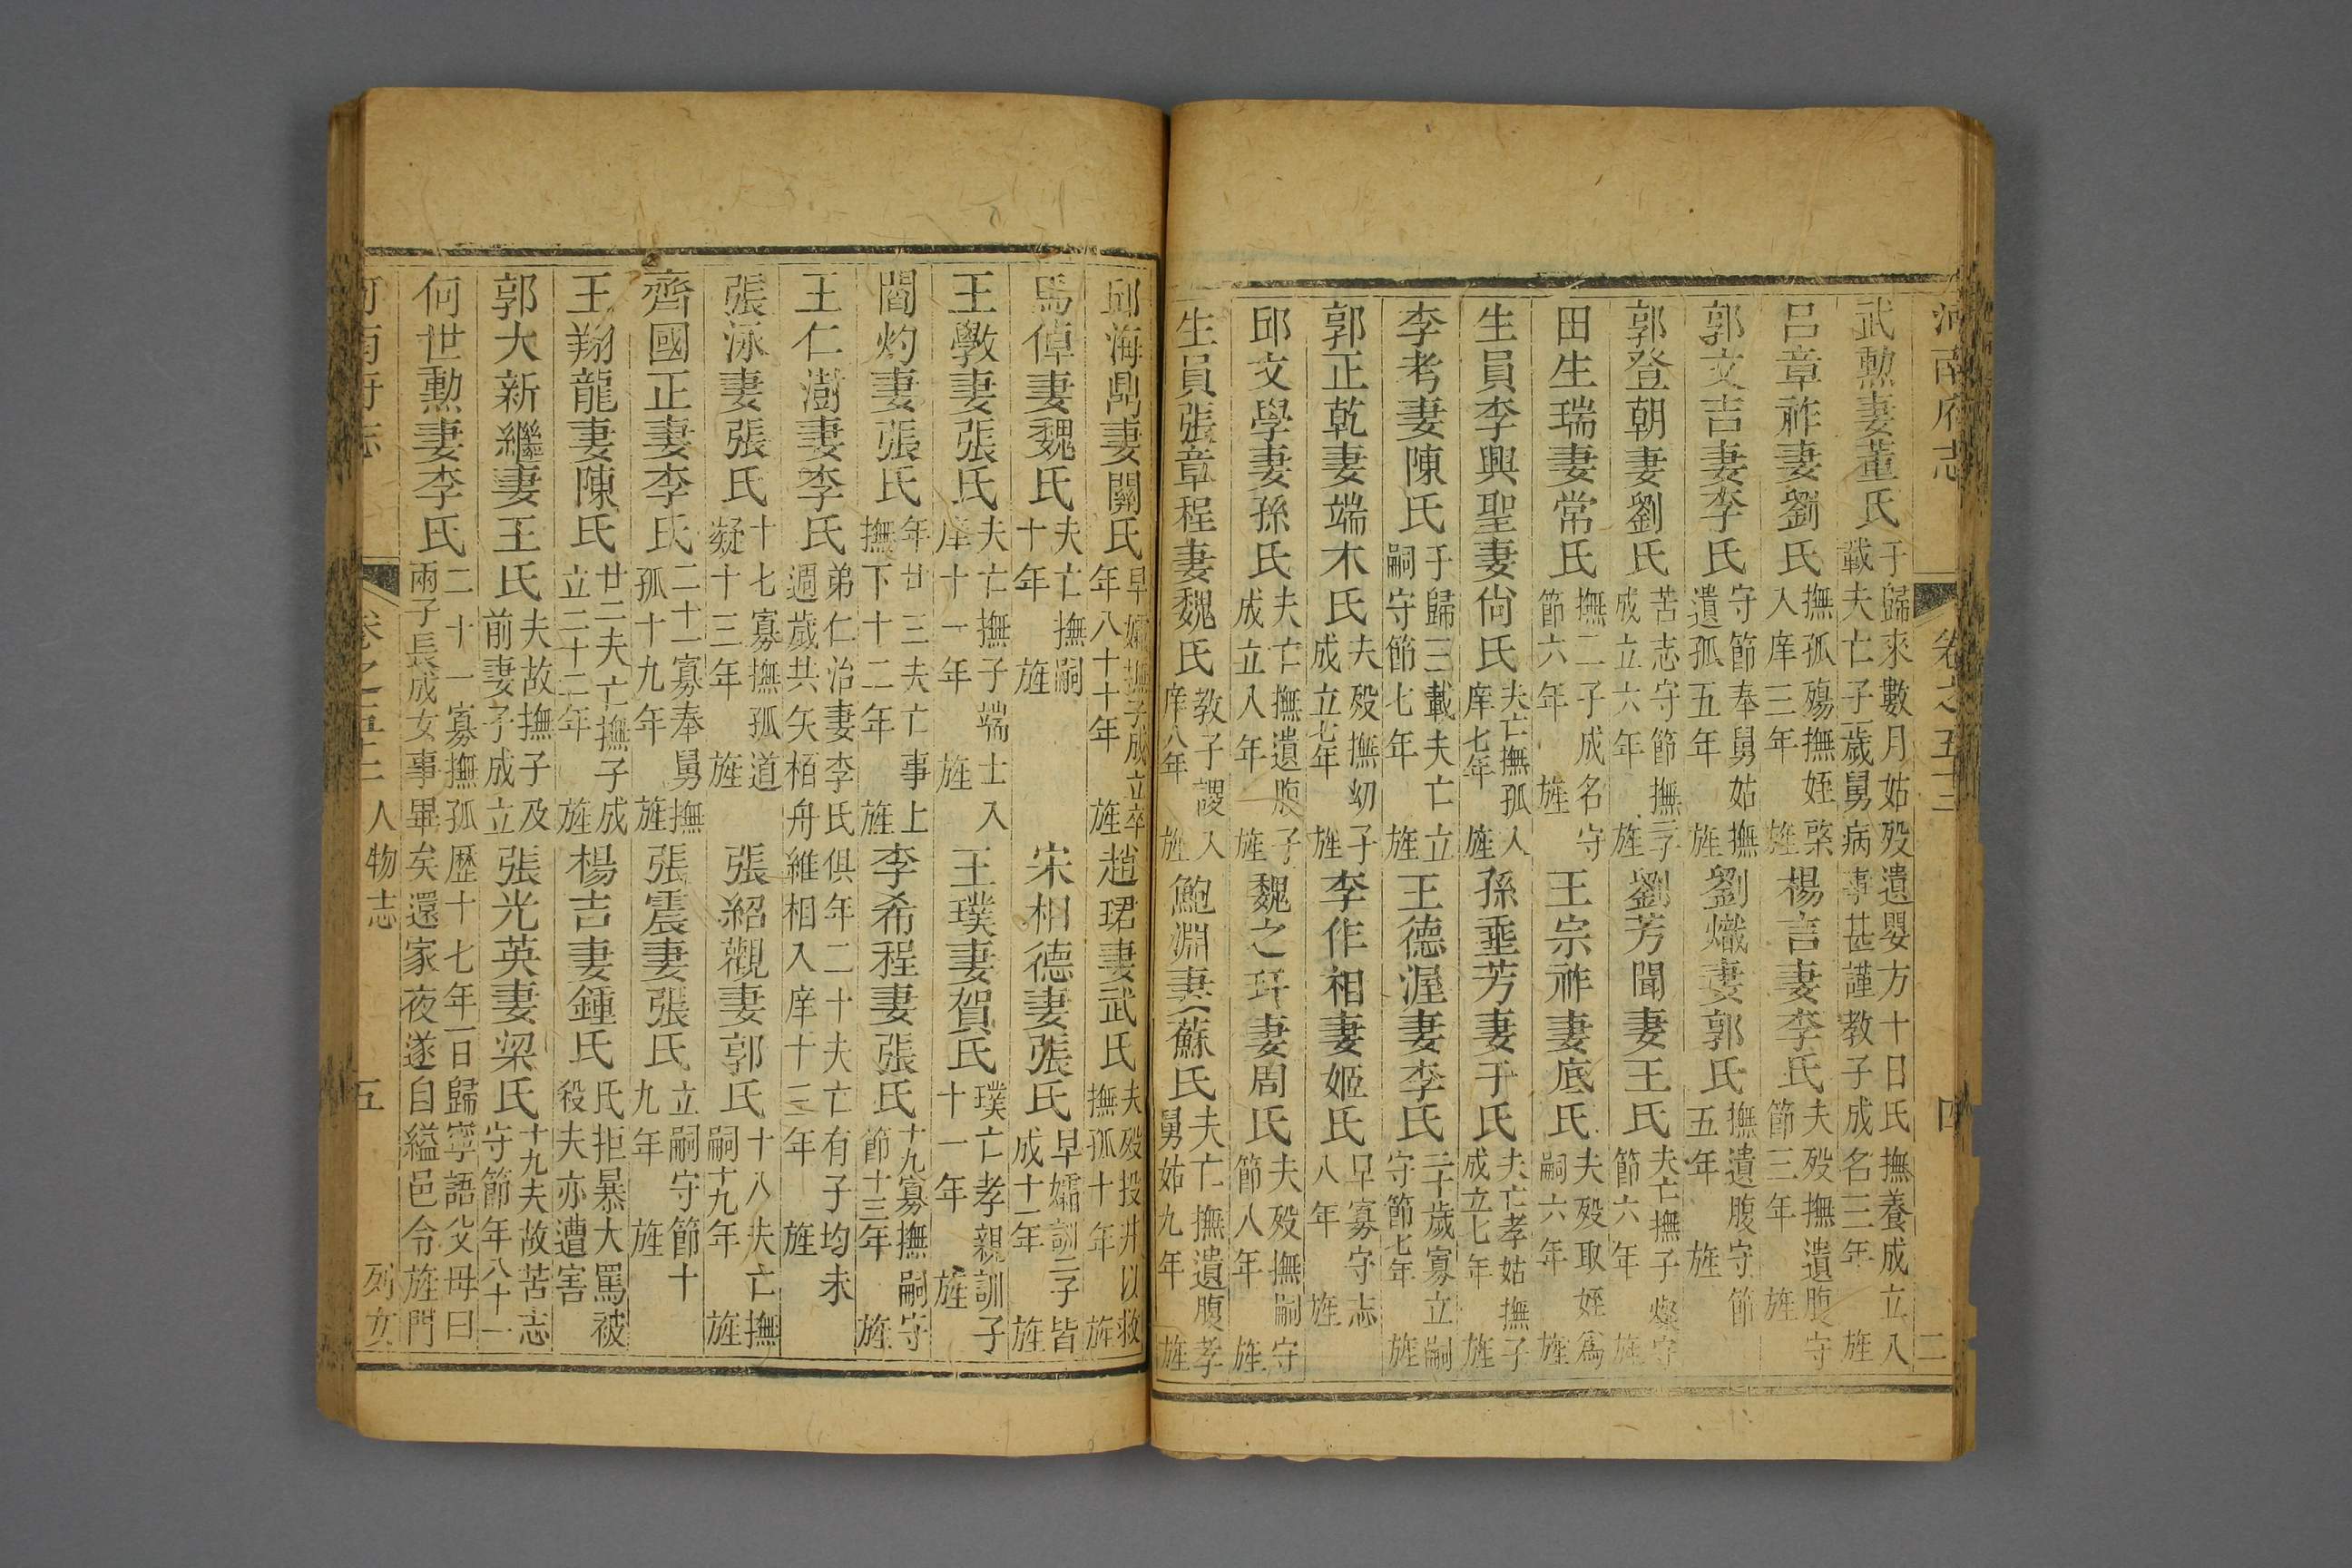 河南府志 卷之五十三 四 二
武勲妻董氏 于歸來數月姑殁遺嬰方十日氏撫養成立八
載夫亡子一歲舅病事甚謹教子成名三年 旌
呂章祚妻劉氏 撫孤殤撫姪棨
入庠三年 旌
楊言妻李氏 夫殁撫遺腹守
節三年 旌
郭文吉妻李氏 守節奉舅姑撫
遺孤五年 旌
劉熾妻郭氏 撫遺腹守節
五年 旌
郭登朝妻劉氏 苦志守節撫二子
成立六年 旌
劉芳聞妻王氏 夫亡撫子燦守
節六年 旌
田生瑞妻常氏 撫二子成名守
節六年 旌
王宗祚妻底氏 夫殁取姪為
嗣六年 旌
生員李興聖妻尙氏 夫亡撫孤入
庠七年 旌
孫垂芳妻于氏 夫亡孝姑撫子
成立七年 旌
李考妻陳氏 于歸三載夫亡立
嗣守節七年 旌
王德渥妻李氏 二十歲寡立嗣
守節七年 旌
郭正乾妻端木氏 夫殁撫幼子
成立七年 旌
李作相妻姬氏 早寡守志
八年 旌
邱文學妻孫氏 夫亡撫遺腹子
成立八年 旌
魏之玕妻周氏 夫殁撫嗣守
節八年 旌
生員張章程妻魏氏 教子謖入
庠八年 旌
鮑淵妻蘇氏 夫亡撫遺腹孝
舅姑九年 旌
邱海鼎妻關氏 早孀撫子成立卒
年八十十年 旌
趙珺妻武氏 夫殁投井以救
撫孤十年 旌
馬倬妻魏氏 夫亡撫嗣
十年 旌
宋相德妻張氏 早孀訓二子皆
成十一年 旌
王斆妻張氏 夫亡撫子端士入
庠十一年 旌
王璞妻賀氏 璞亡孝親訓子
十一年 旌
閻灼妻張氏 年廿三夫亡事上
撫下十二年 旌
李希程妻張氏 十九寡撫嗣守
節十三年 旌
王仁澍妻李氏 弟仁治妻李氏俱年二十夫亡有子均未
週歲共矢栢舟維相入庠十三年 旌
張泳妻張氏 十七寡撫孤道
凝十三年 旌
張紹觀妻郭氏 十八夫亡撫
嗣十九年 旌
齊國正妻李氏 二十一寡奉舅撫
孤十九年 旌
張震妻張氏 立嗣守節十
九年 旌
王翔龍妻陳氏 廿二夫亡撫子成
立二十二年 旌
楊吉妻鍾氏 氏拒暴大罵被
役夫亦遭害
郭大新繼妻王氏 夫故撫子及
前妻子成立
張光英妻梁氏 十九夫故苦志
守節年八十一
何世勲妻李氏 二十一寡撫孤歷十七年一日歸寧語父母曰
兩子長成女事畢矣還家夜遂自縊邑令旌門
河南府志 卷之五十三 人物志 五 列女